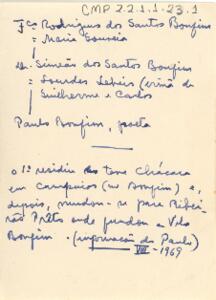 CMP 2.2.1.1-23.1
Fco Rodrigues dos Santos Bonfim
= Maria Gouveia
Simeão dos Santos Bonfim
= Lourdes Lebeis (irmã de
Guilherme e Carlos
Paulo Bonfim, poeta
o 1º residiu e teve Chácara
em Campinas (no Bonfim) e,
depois, mudou-se para Ribei-
rão Prêto onde fundou a Vila
Bonfim. (informação do Paulo)
VIII-1969